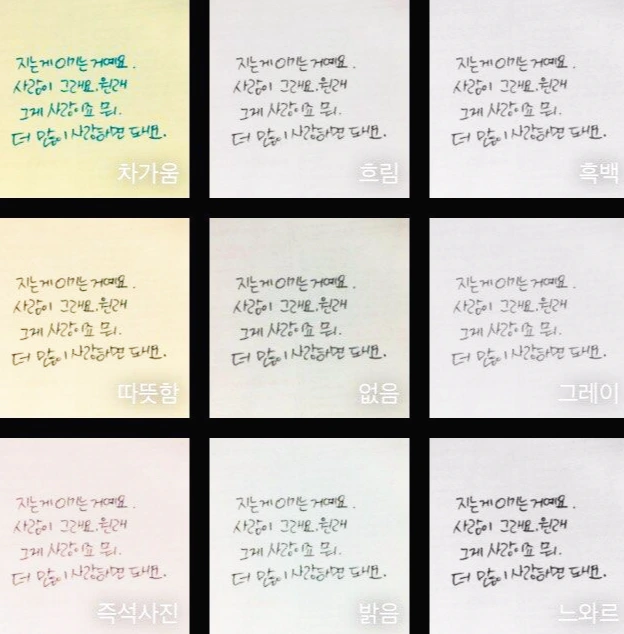 지는게 이기는 거예요.
사랑이 그래요. 원래
그게 사랑이죠 뭐.
더 많이 사랑하면 돼요.
차가움
지는게 이기는 거예요.
사랑이 그래요. 원래
그게 사랑이죠 뭐.
더 많이 사랑하면 돼요.
흐림
지는게 이기는 거예요.
사랑이 그래요. 원래
그게 사랑이죠 뭐.
더 많이 사랑하면 돼요.
흑백
지는게 이기는 거예요.
사랑이 그래요. 원래
그게 사랑이죠 뭐.
더 많이 사랑하면 돼요.
따뜻함
지는게 이기는 거예요.
사랑이 그래요. 원래
그게 사랑이죠 뭐.
더 많이 사랑하면 돼요.
없음
지는게 이기는 거예요.
사랑이 그래요. 원래
그게 사랑이죠 뭐.
더 많이 사랑하면 돼요.
그레이
지는게 이기는 거예요.
사랑이 그래요. 원래
그게 사랑이죠 뭐.
더 많이 사랑하면 돼요.
즉석사진
지는게 이기는 거예요.
사랑이 그래요. 원래
그게 사랑이죠 뭐.
더 많이 사랑하면 돼요.
밝음
지는게 이기는 거예요.
사랑이 그래요. 원래
그게 사랑이죠 뭐.
더 많이 사랑하면 돼요.
느와르